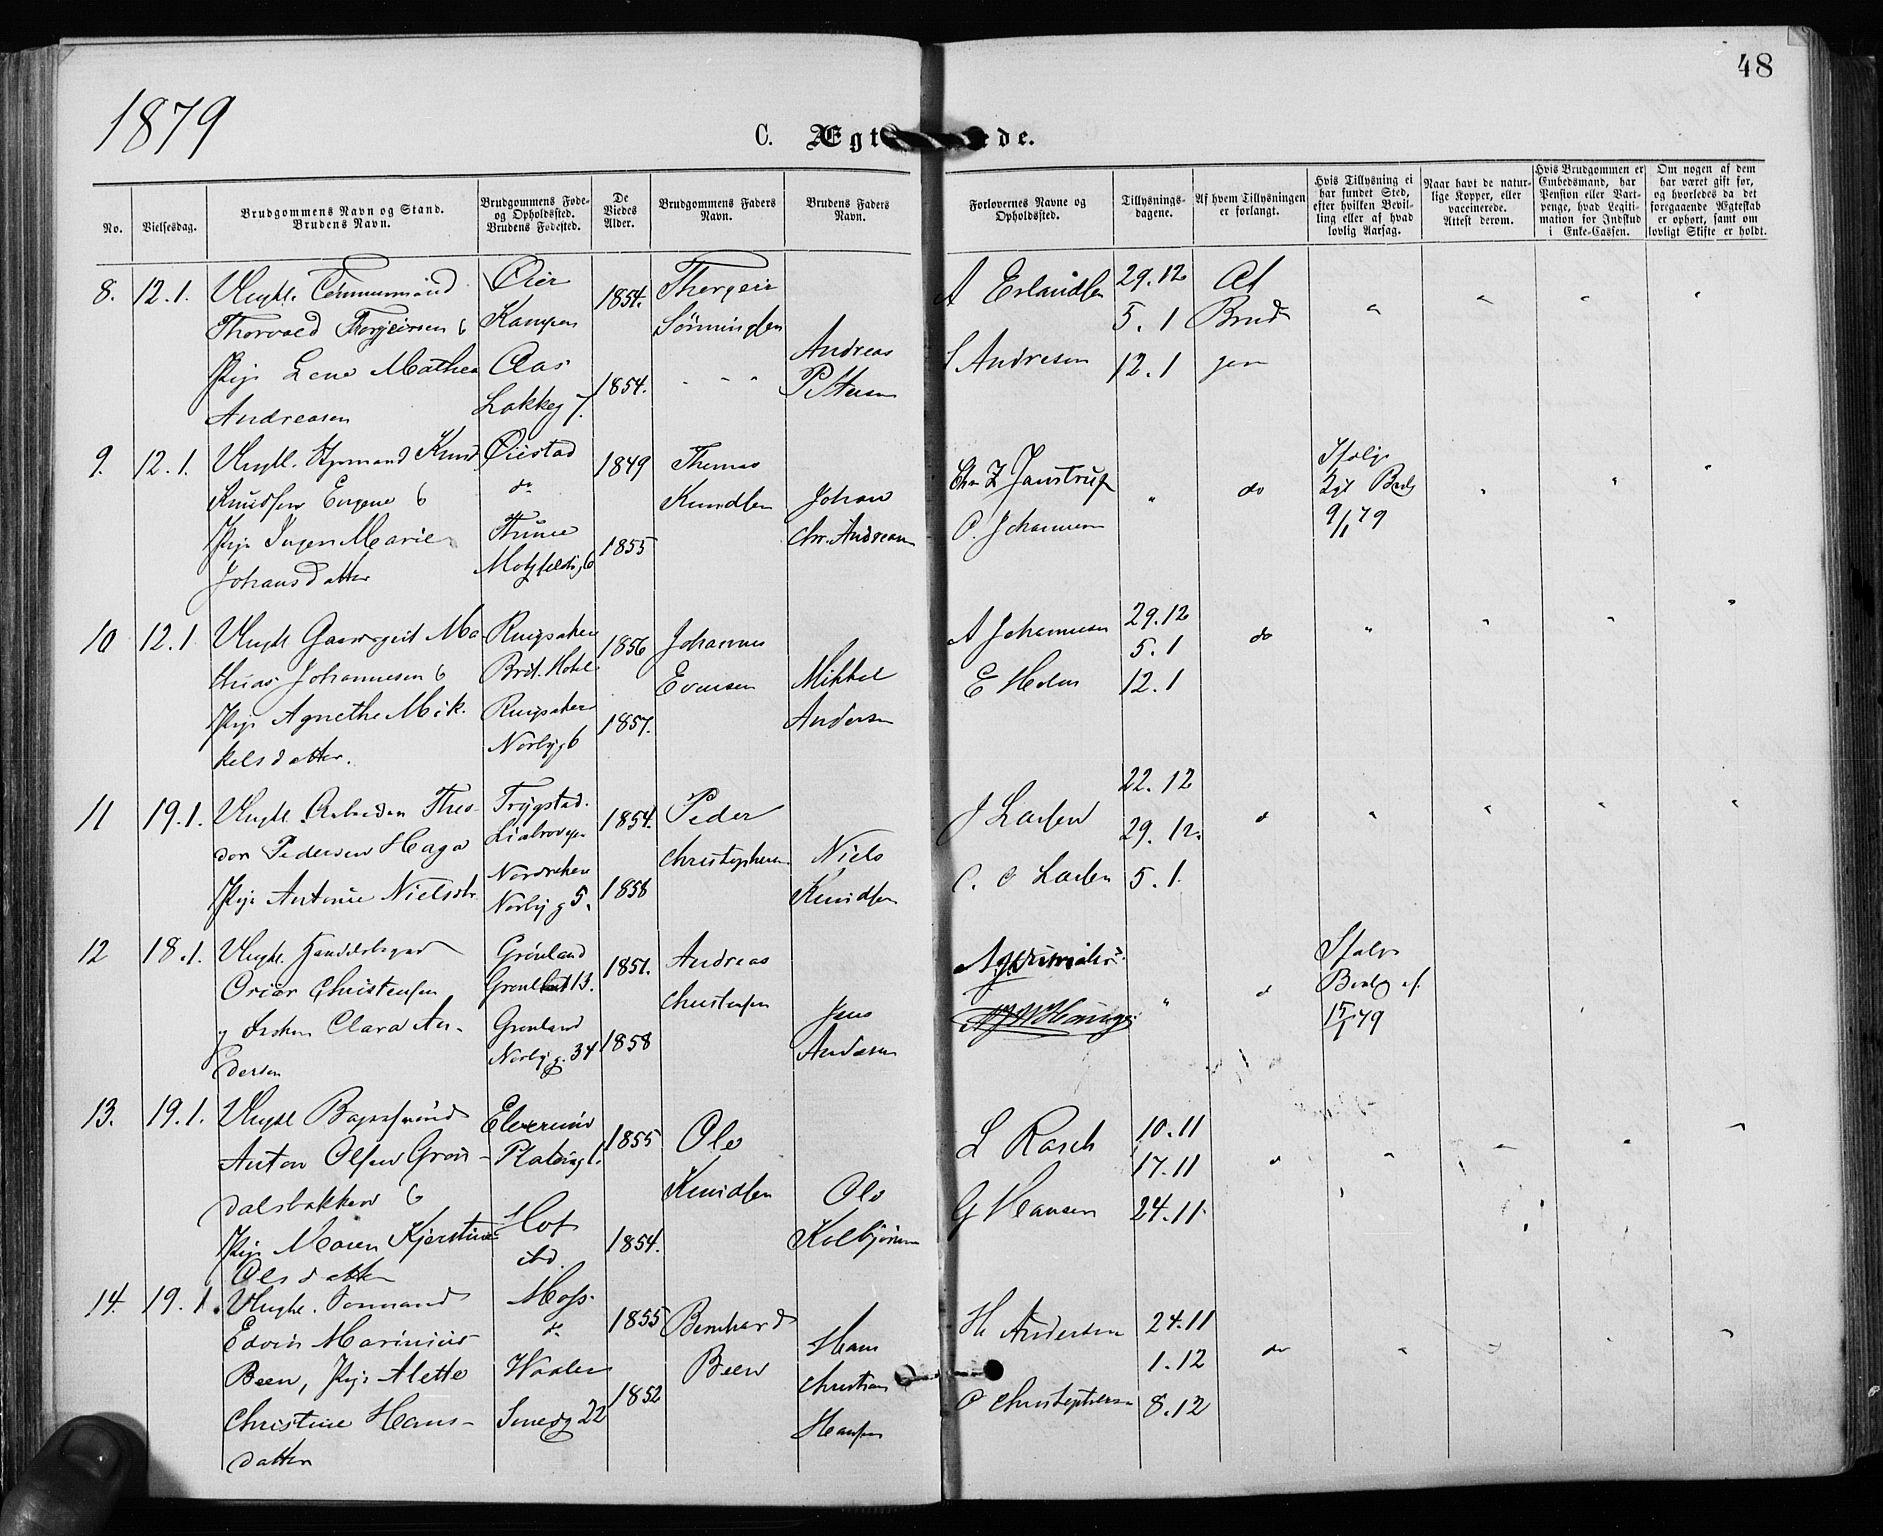 48
1879
C. Ægt ede.
No.
Vielsesdag.
Brudgommens Navn og Stand.
Brudens Navn.
Brudgommens Føde-
og Opholdssted.
Brudens Fødested.
De
Viedes
Alder.
Brudgommens Faders
Navn.
Brudens Faders
Navn.
Forlovernes Navne og
Opholdssted.
Tillysnings-
dagene.
Af hvem Tillysningen
er forlangt.
Hvis Tillysning ei
har fundet Sted,
efter hvilken Bevil-
ling eller af hvad
lovlig Aarsag.
Naar havt de natur-
lige Kopper, eller
vaccinerede.
Attest derom.
Hvis Brudgommen er
Embedsmand, har
Pension eller Vart-
penge, hvad Legiti-
mation for Indskud
i Enke-Cassen.
Om nogen af dem
har været gift før,
og hvorledes da det
foregaaende Ægteskab
er ophørt, samt om
lovligt Skifte er holdt.
8. 12.1. Ungkl. Tømmermand
Thorvald Thorgeirsen &
Pige Lene Mathea
Andreasen
Øier
Kampen
Aas
Lakkeg 7.
1854.
1854.
Thorgeir
Andreas
Pettersen
A Erlandsen
S Andresen
29.12
5.1
12.1
Af
Brud
gom
9. 12.1. Ungkl. Knud
Knudsen Eugene &
Pige Inger Marie
Johansdatter
Øiestad
do
Thune
Motzfeldtsg 6
1849
1855
Thomas
Knudsen
Johan
Chr. Andreasen
Chr Z Janstrup
O. Johannesen
" do
Ifølge
Kgl Bevlg
9/1 79
10 12.1. Ungkl Gaardsgut Ma
thias Johannesen &
Pige Agnethe Mik-
kelsdatter.
Ringsaker
Brit. Hotel
Ringsaker
Norbyg 6
1856
1857.
Johannes
Evensen
Mikkel
Andersen
A Johannesen
E Holm
29.12
5.1
12.1
do
11 19.1. Ungkl. Arbeider Theo-
dor Pedersen Haga
Pige Antonie Nielsdtr.
Trygstad.
Nordrehov
Norbyg 5.
1854.
1858
Peder
Christophersen
Niels
Knudsen
J Larsen
C. O Larsen
22.12
29.12.
5.1.
12 18.1. Ungkl.
Oscar Christensen
Clara An-
dersen
Grønland
Grønland 13.
Grønland
Norbyg. 34
1851.
1858
Andreas
Christensen
Jens
Andersen
Ifølge
Bevlg af
15/1 79
13. 19.1. Ungkl Bagersvend
Anton Olsen Grøn-
dalsbakken &
Pige Maren Kjerstine
Olsdatter
Elverum
Platoug 1.
Hof
ibd.
1855
1854.
Ole
Knudsen
Ole
Kolbjørnsen
L Rasch
G Hansen
10.11
17.11
24.11.
14. 19.1. Ungkl. Sømand
Edvin Marinius
Been, Pige Alette
Christine Hans-
datter
Moss.
do
Vaaler
Smedg 22
1855
1852
Bernhard
Been
Hans
Christian
Hansen
H. Andersen
O Christophersen
24.11
1.12
8.12
do